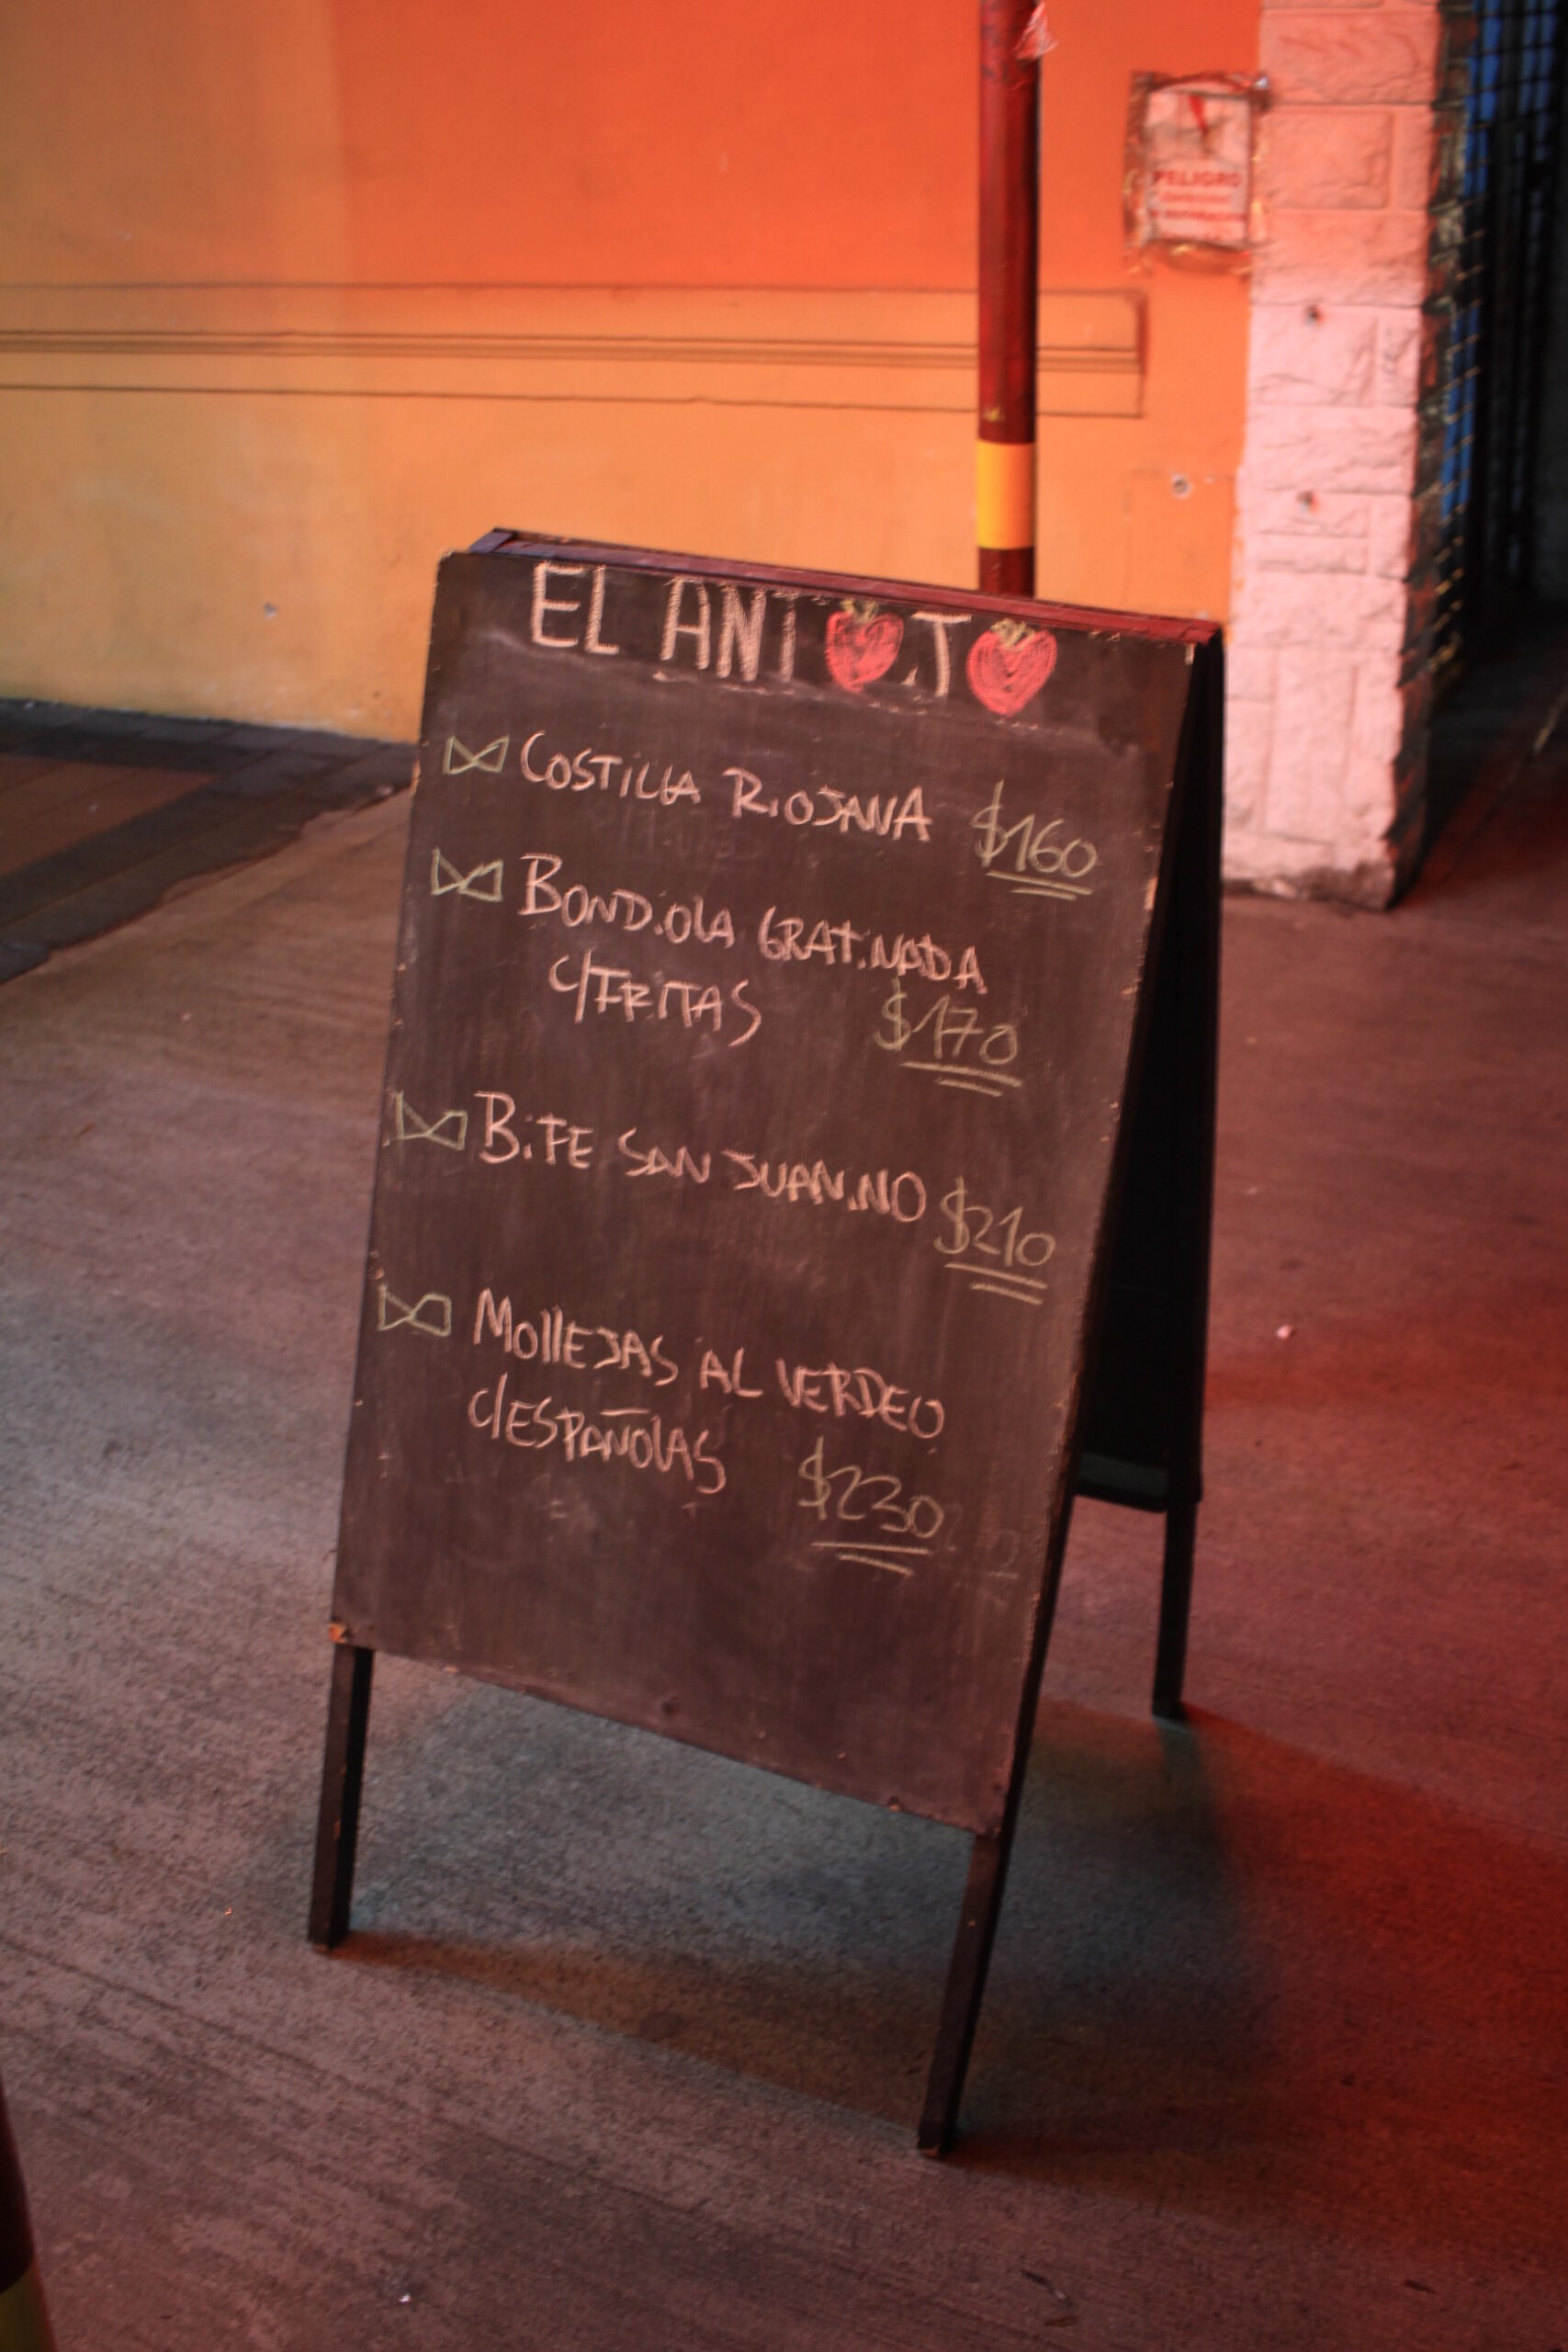 PELIGRO
EL ANTOJO
COSTILLA RIOJANA $160
BONDIOLA GRATINADA
C/FRITAS $170
BIFE SAN JUANINO $210
MOLLEJAS AL VERDEO
C/ESPAÑOLAS $230